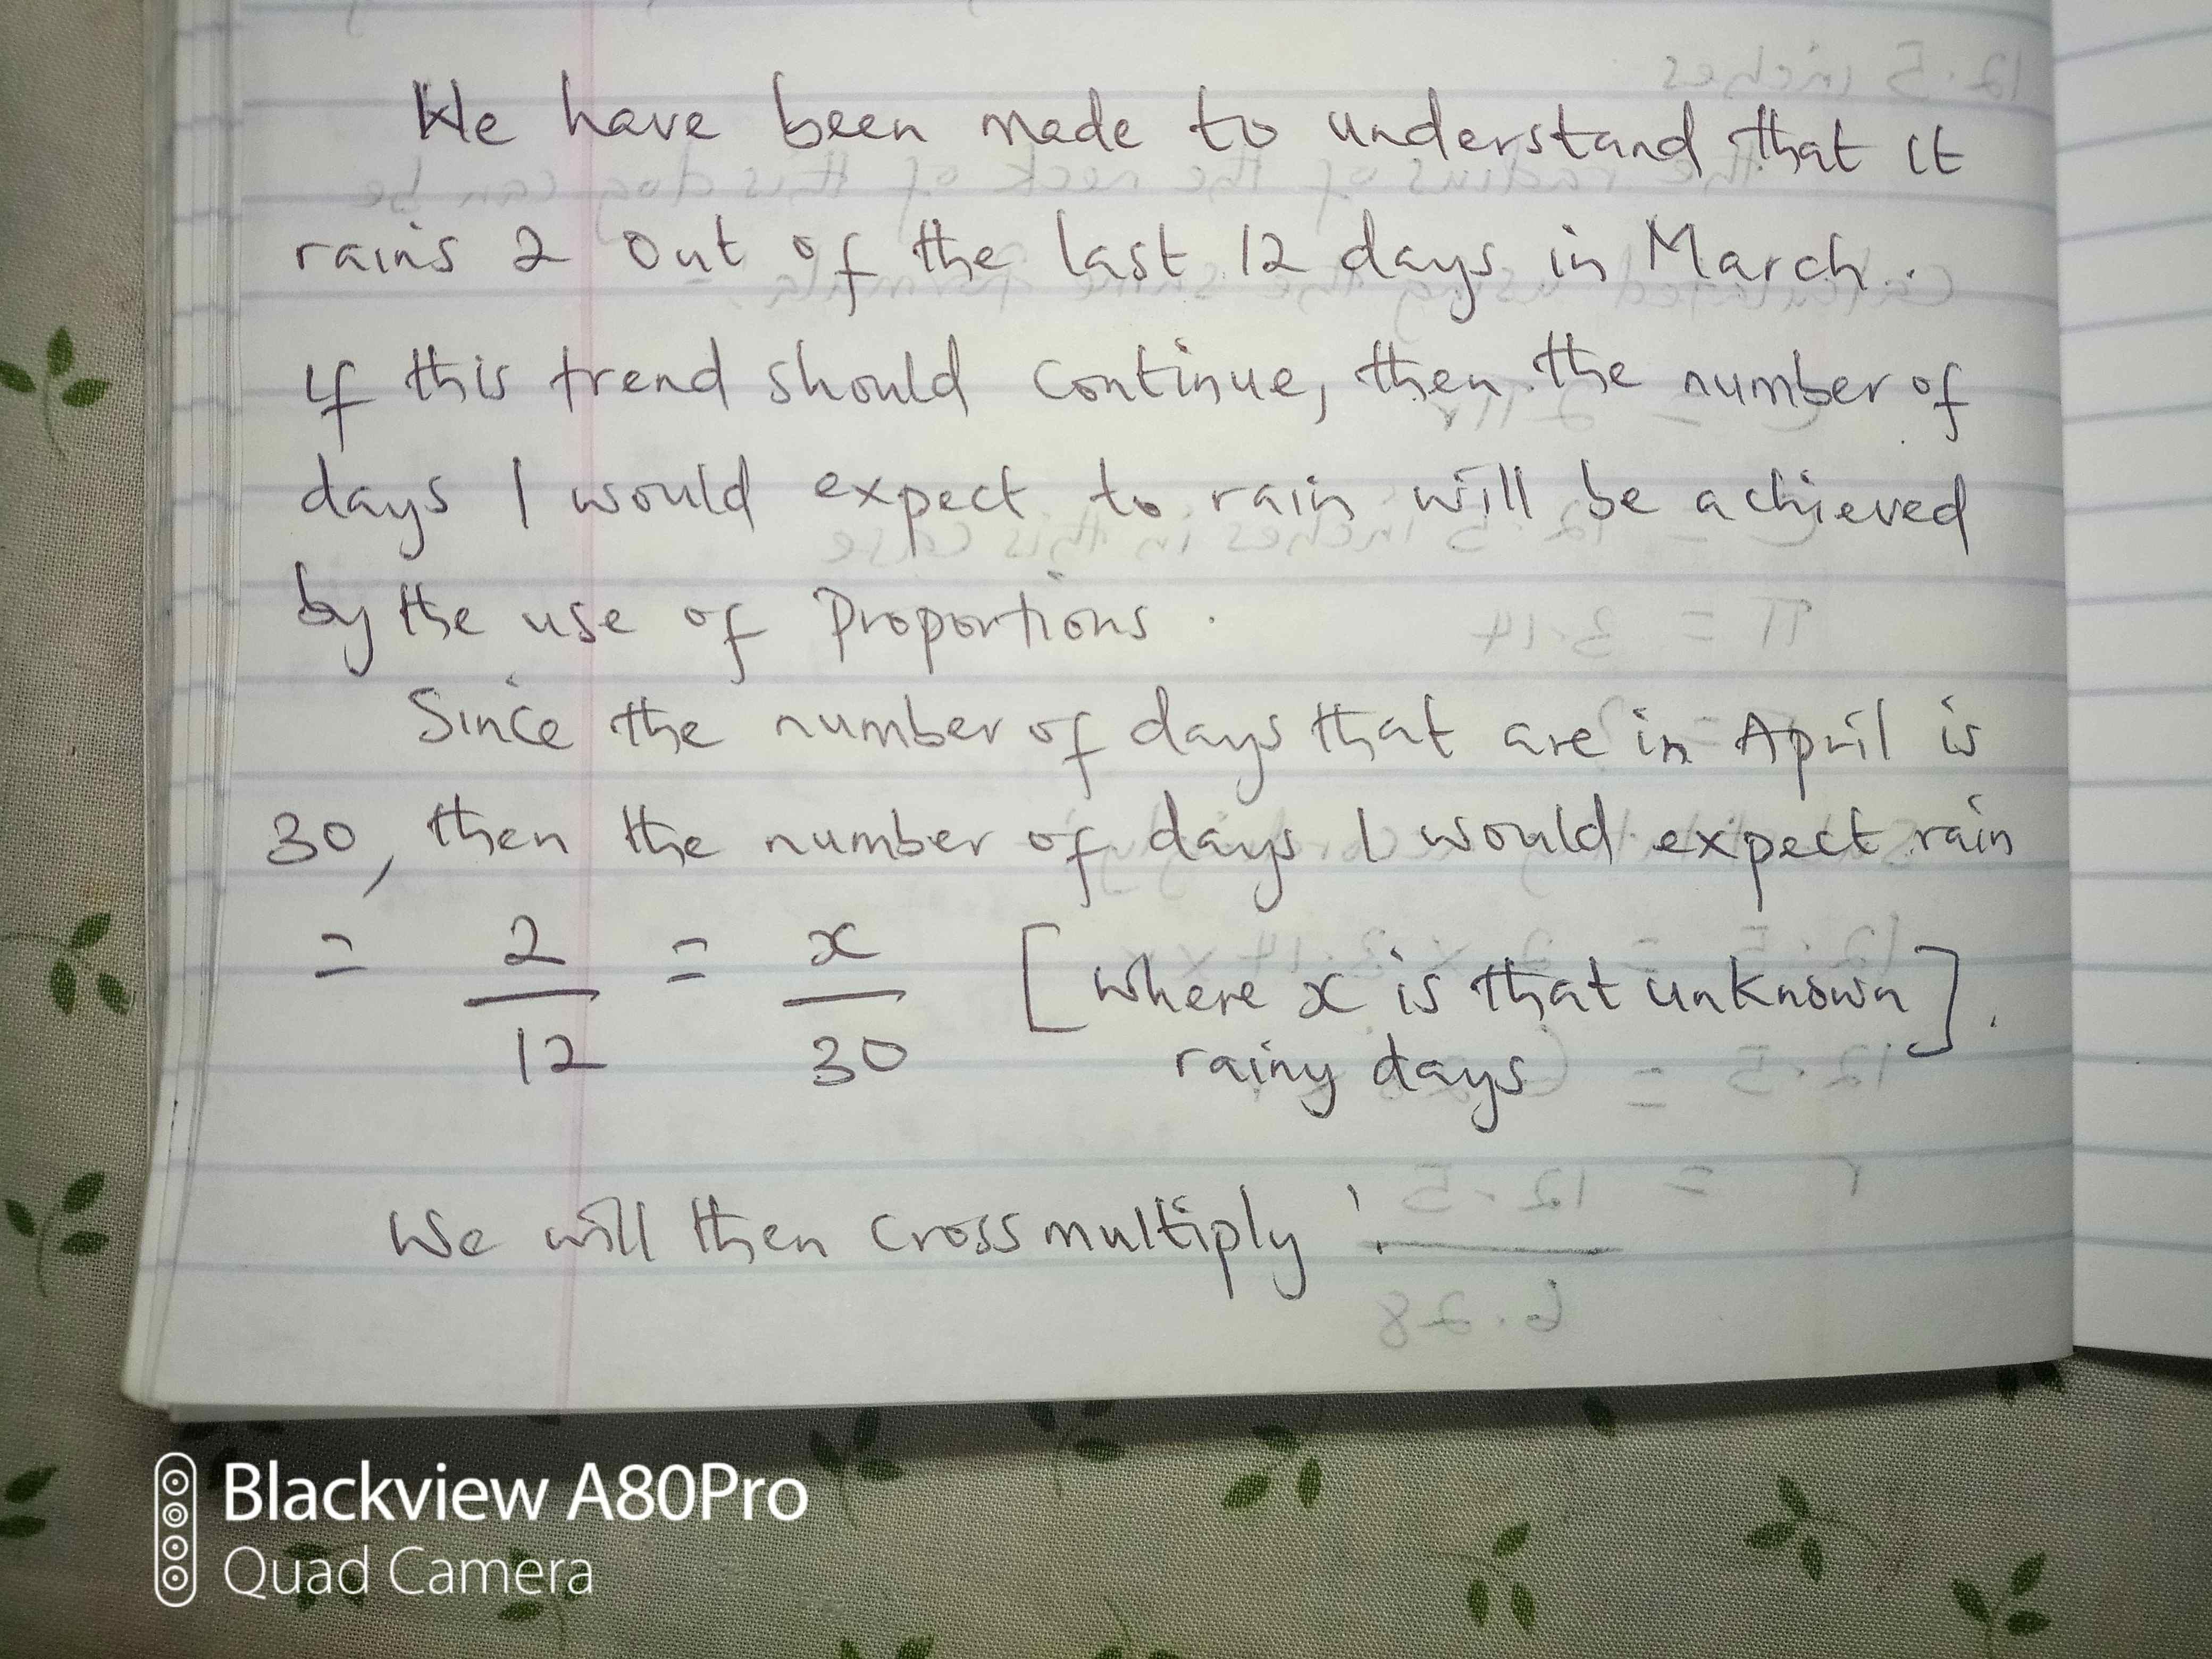 We have been made to understand that it
rains 2 out of the last 12 days in March.
If this trend should continue, then the number of
days I would expect to rain will be achieved
by the use of proportions.
Since the number of days that are in April is
30, then the number of days I would expect rain
= 2/12 = x/30 [where x is that unknown rainy days].
We will then cross multiply:
Blackview A80Pro
Quad Camera